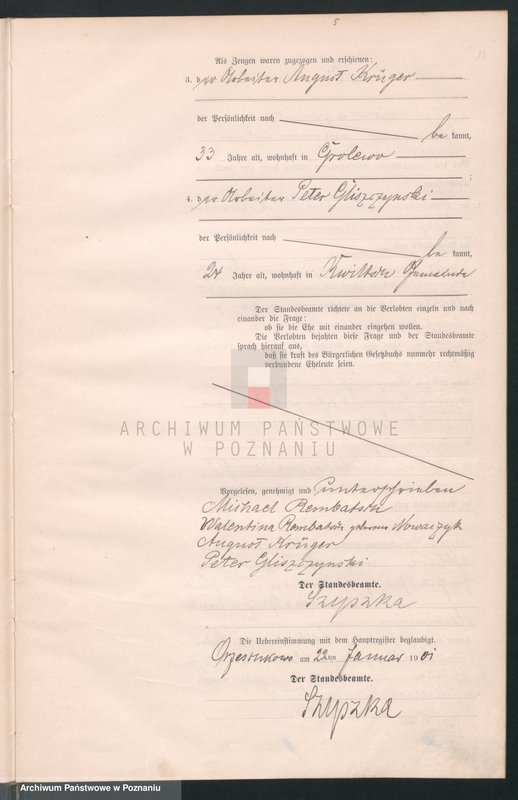 5
Als Zeugen waren zugezogen und erschienen:
3. der Arbeiter August Krüger
der Persönlichkeit nach
be kannt,
33 Jahre alt, wohnhaft in Grolewo
4. der Arbeiter Peter Gliszczynski
der Persönlichkeit nach
be kannt,
24 Jahre alt, wohnhaft in Gemeinde
Der Standesbeamte richtete an die Verlobten einzeln und nach
einander die Frage:
ob sie die Ehe mit einander eingehen wollen.
Die Verlobten bejahten diese Frage und der Standesbeamte
sprach hierauf aus,
daß sie kraft des Bürgerlichen Gesetzbuchs nunmehr rechtmäßig
verbundene Eheleute seien.
ARCHIWUM PAŃSTWOWE
W POZNANIU
Vorgelesen, genehmigt und unterschrieben
Michael
Walentina geborene Nowaczyk
August Krüger
Peter Gliszczynski
Der Standesbeamte.
Szyszka
Die Uebereinstimmung mit dem Hauptregister beglaubigt.
am 22ten Januar 1901
Der Standesbeamte.
Szyszka
Archiwum Państwowe w Poznaniu